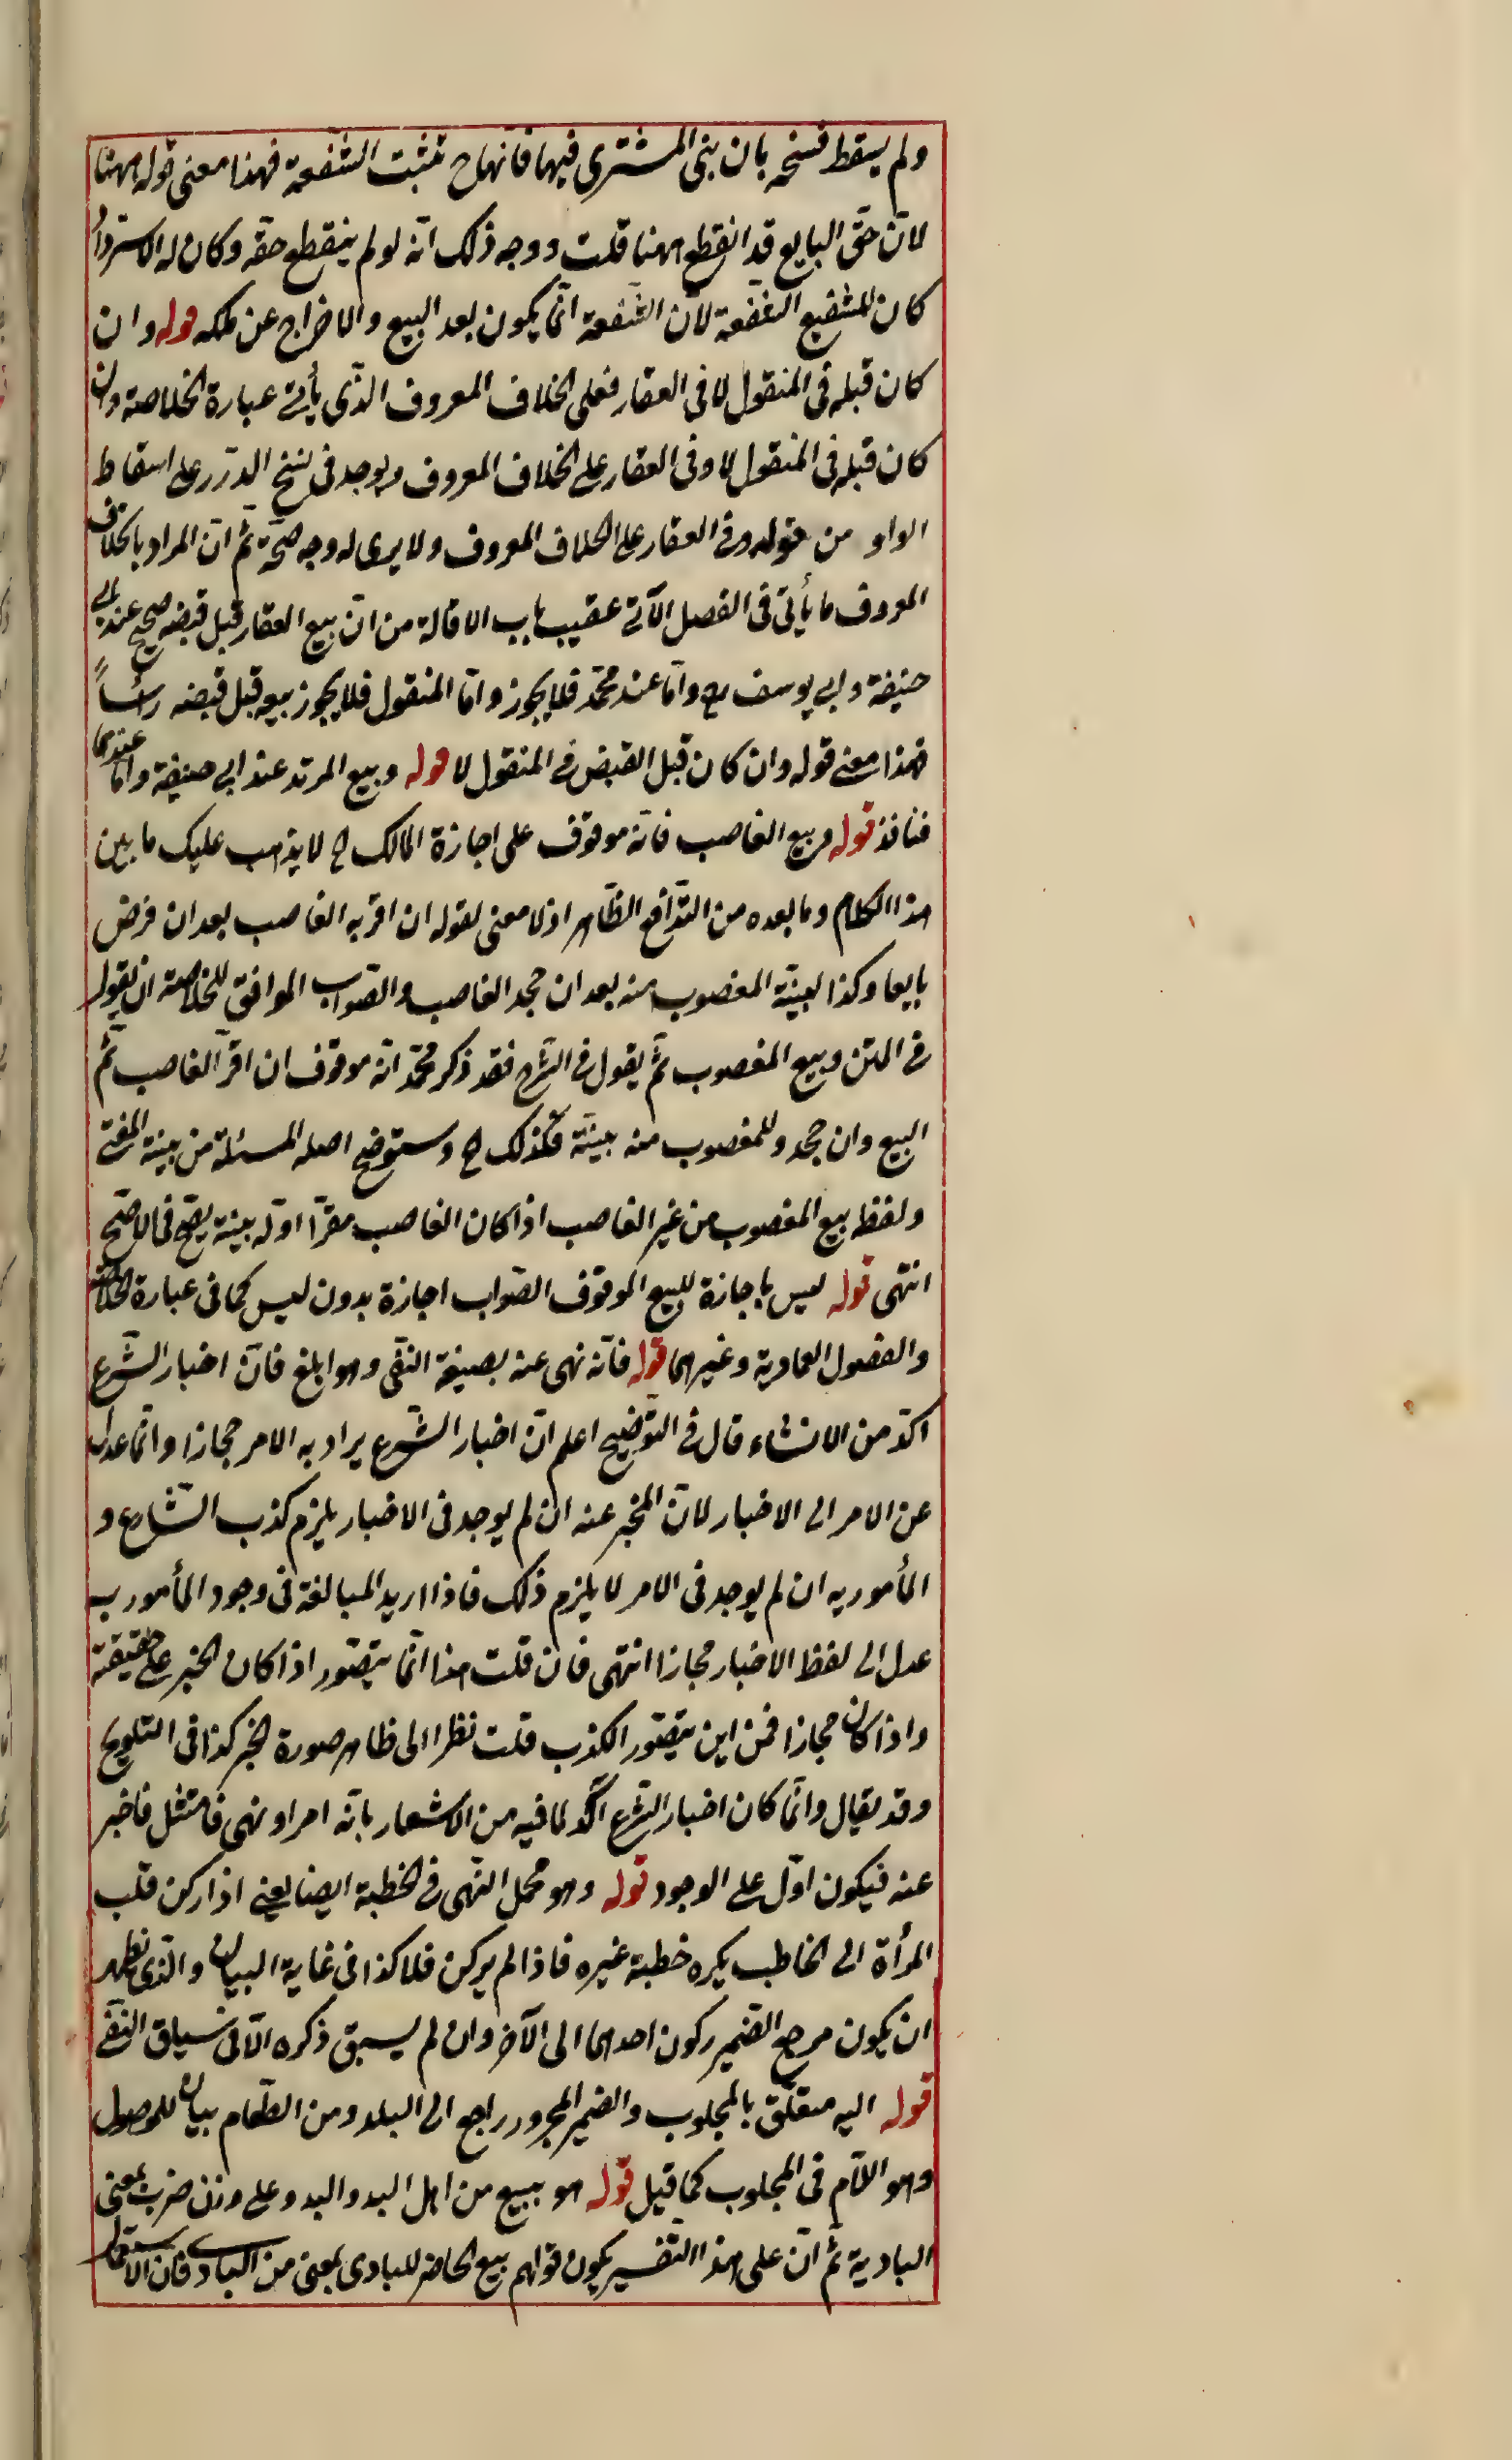 ولم يسقط فسخه بان بنى المشترى فيها فانها ح تثبت الشفعة فهذا معنى قوله ههنا
لانّ حقّ البايع قد انقطع ههنا قلت ووجه ذلك انّه لو لم ينقطع حقّه وكان له الاسترداد
كان للشفيع الشفعة لانّ الشّفعة انّما يكون بعد البيع والاخراج عن ملكه قوله وان
كان قبله فى المنقول لا فى العقار فعلى الخلاف المعروف الّذى يأتى عبارة الخلاصة وان
كان قبله فى المنقول لا وفى العقار على الخلاف المعروف ويوجد فى نسخ الدّرر على اسقاط
الواو من قوله وفى العقار على الخلاف المعروف ولا يرى له وجه صحّة ثمّ انّ المراد بالخلاف
المعروف ما يأتى فى الفصل الآتى عقيب باب الاقالة من انّ بيع العقار قبل قبضه صحيح عند ابى
حنيفة وابى يوسف رح وامّا عند محمّد فلا يجوز وامّا المنقول فلا يجوز بيعه قبل قبضه رأساً
فهذا معنى قوله وان كان قبل القبض فى المنقول لا قوله وبيع المرتد عند ابى حنيفة وامّا عندهما
فنافذ قوله وبيع الغاصب فانّه موقوف على اجازة المالك ح لا يذهب عليك ما بين
هذا الكلام وما بعده من التّدافع الظّاهر اذ لا معنى لقوله ان اقرّ به الغاصب بعد ان فرض
بايعا وكذا لبينّة المغصوب منه بعد ان جحد الغاصب والصّواب الموافق للخلاصة ان يقول
فى المتن وبيع المغصوب ثمّ يقول فى الشّرح فقد ذكر محمّد انّه موقوف ان اقرّ الغاصب تمّ
البيع وان جحد وللمغصوب منه بينّة فكذلك ح وستوضح اصله المسئلة من بينة المفتى
ولفظ بيع المغصوب من غير الغاصب اذا كان الغاصب مقرّا او له بينة يصحّ فى الاصحّ
انتهى قوله ليس باجازة للبيع الموقوف الصّواب اجازة بدون ليس كما فى عبارة الخلاصة
والفصول العمادية وغيرهما قوله فانّه نهى عنه بصيغة النّفى وهو ابلغ فانّ اخبار الشّرع
اكّد من الانشاء قال فى التّوضيح اعلم انّ اخبار الشّرع يراد به الامر مجازا وانّما عدل
عن الامر الى الاخبار لانّ المخبر عنه ان لم يوجد فى الاخبار يلزم كذب الشّارع و
المأمور به ان لم يوجد فى الامر لا يلزم ذلك فاذا اريد المبالغة فى وجود المأمور به
عدل الى لفظ الاخبار مجازا انتهى فان قلت هذا انّما يتصّور اذا كان الخبر على حقيقته
واذا كان مجازا فمن اين يتصّور الكذب قلت نظرا الى ظاهر صورة الخبر كذا فى التلويح
وقد يقال وانّما كان اخبار الشّرع اكّد لما فيه من الاشعار بانّه امر او نهى فامتثل فاخبر
عنه فيكون ادّل على الوجود قوله وهو محمل النّهى فى الخطبة ايضا يعنى اذا ركن قلب
المرأة الى الخاطب يكره خطبة غيره فاذا لم يركن فلا كذا فى غاية البيان والّذى يظهر
ان يكون مرجع الضّمير ركون احدهما الى الآخر وان لم يسبق ذكره الّا فى سياق النّفى
قوله اليه متعلّق بالمجلوب والضمير المجرور راجع الى البلد ومن الطّعام بيان للموصول
وهو اللّام فى المجلوب كما قيل قوله هو يبيع من اهل البدو والبدو على وزن ضرب بمعنى
البادية ثمّ انّ على هذا التّفسير يكون قولهم بيع الحاضر للبادى بمعنى من البادى فان الاستعمال